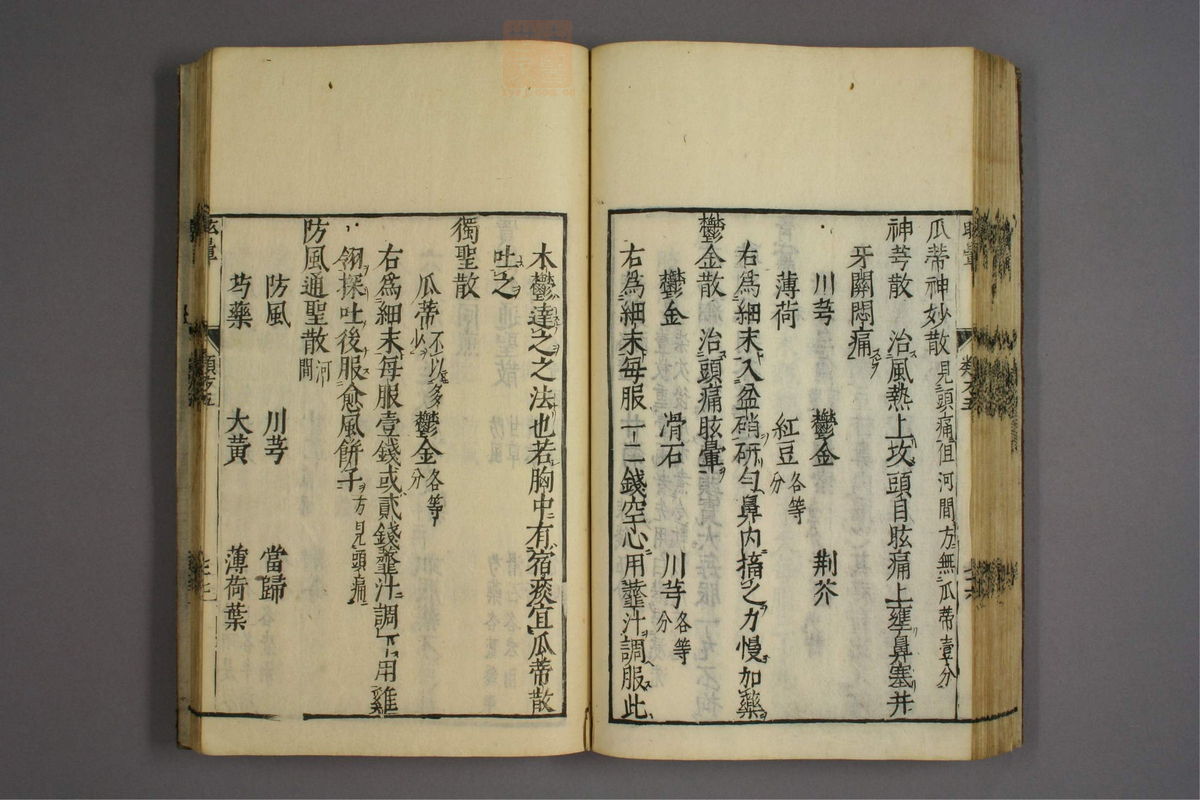 瓜蒂神妙散見頭痛但河間方無瓜蒂壹分
神芎散　治風熱上攻頭目眩痛上壅鼻塞并
牙關悶痛
川芎　鬱金　荆芥
薄荷　紅豆各等分
右為細末入盆硝研勻鼻內搐之力慢加藥
鬱金散　治頭痛眩暈
鬱金　滑石　川芎各等分
右為細末每服一二錢空心用虀汁調服此
木鬱達之之法也若胸中有宿痰宜瓜蒂散
吐之
獨聖散
瓜蒂不以多少　鬱金各等分
右為細末每服壹錢或貳錢虀汁調下用雞
翎探吐後服愈風餅子方見頭痛
防風通聖散河間
防風　川芎　當歸
芍藥　大黃　薄荷葉